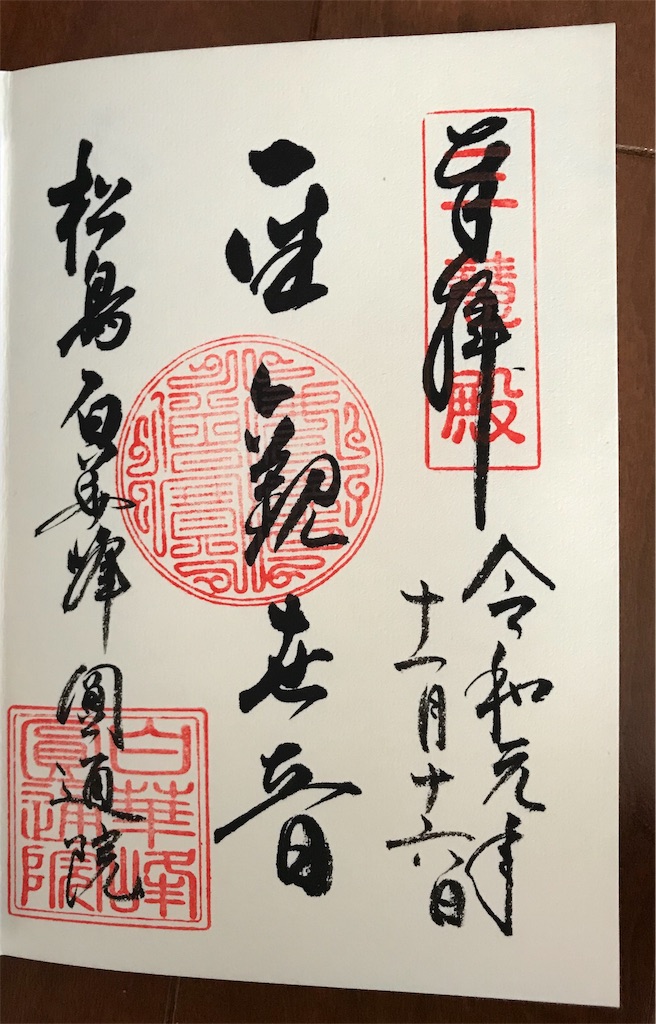 奉拝
三慧殿
令和元年
十一月十六日
聖観世音
松島白華峰圓通院
白華峰
圓通院